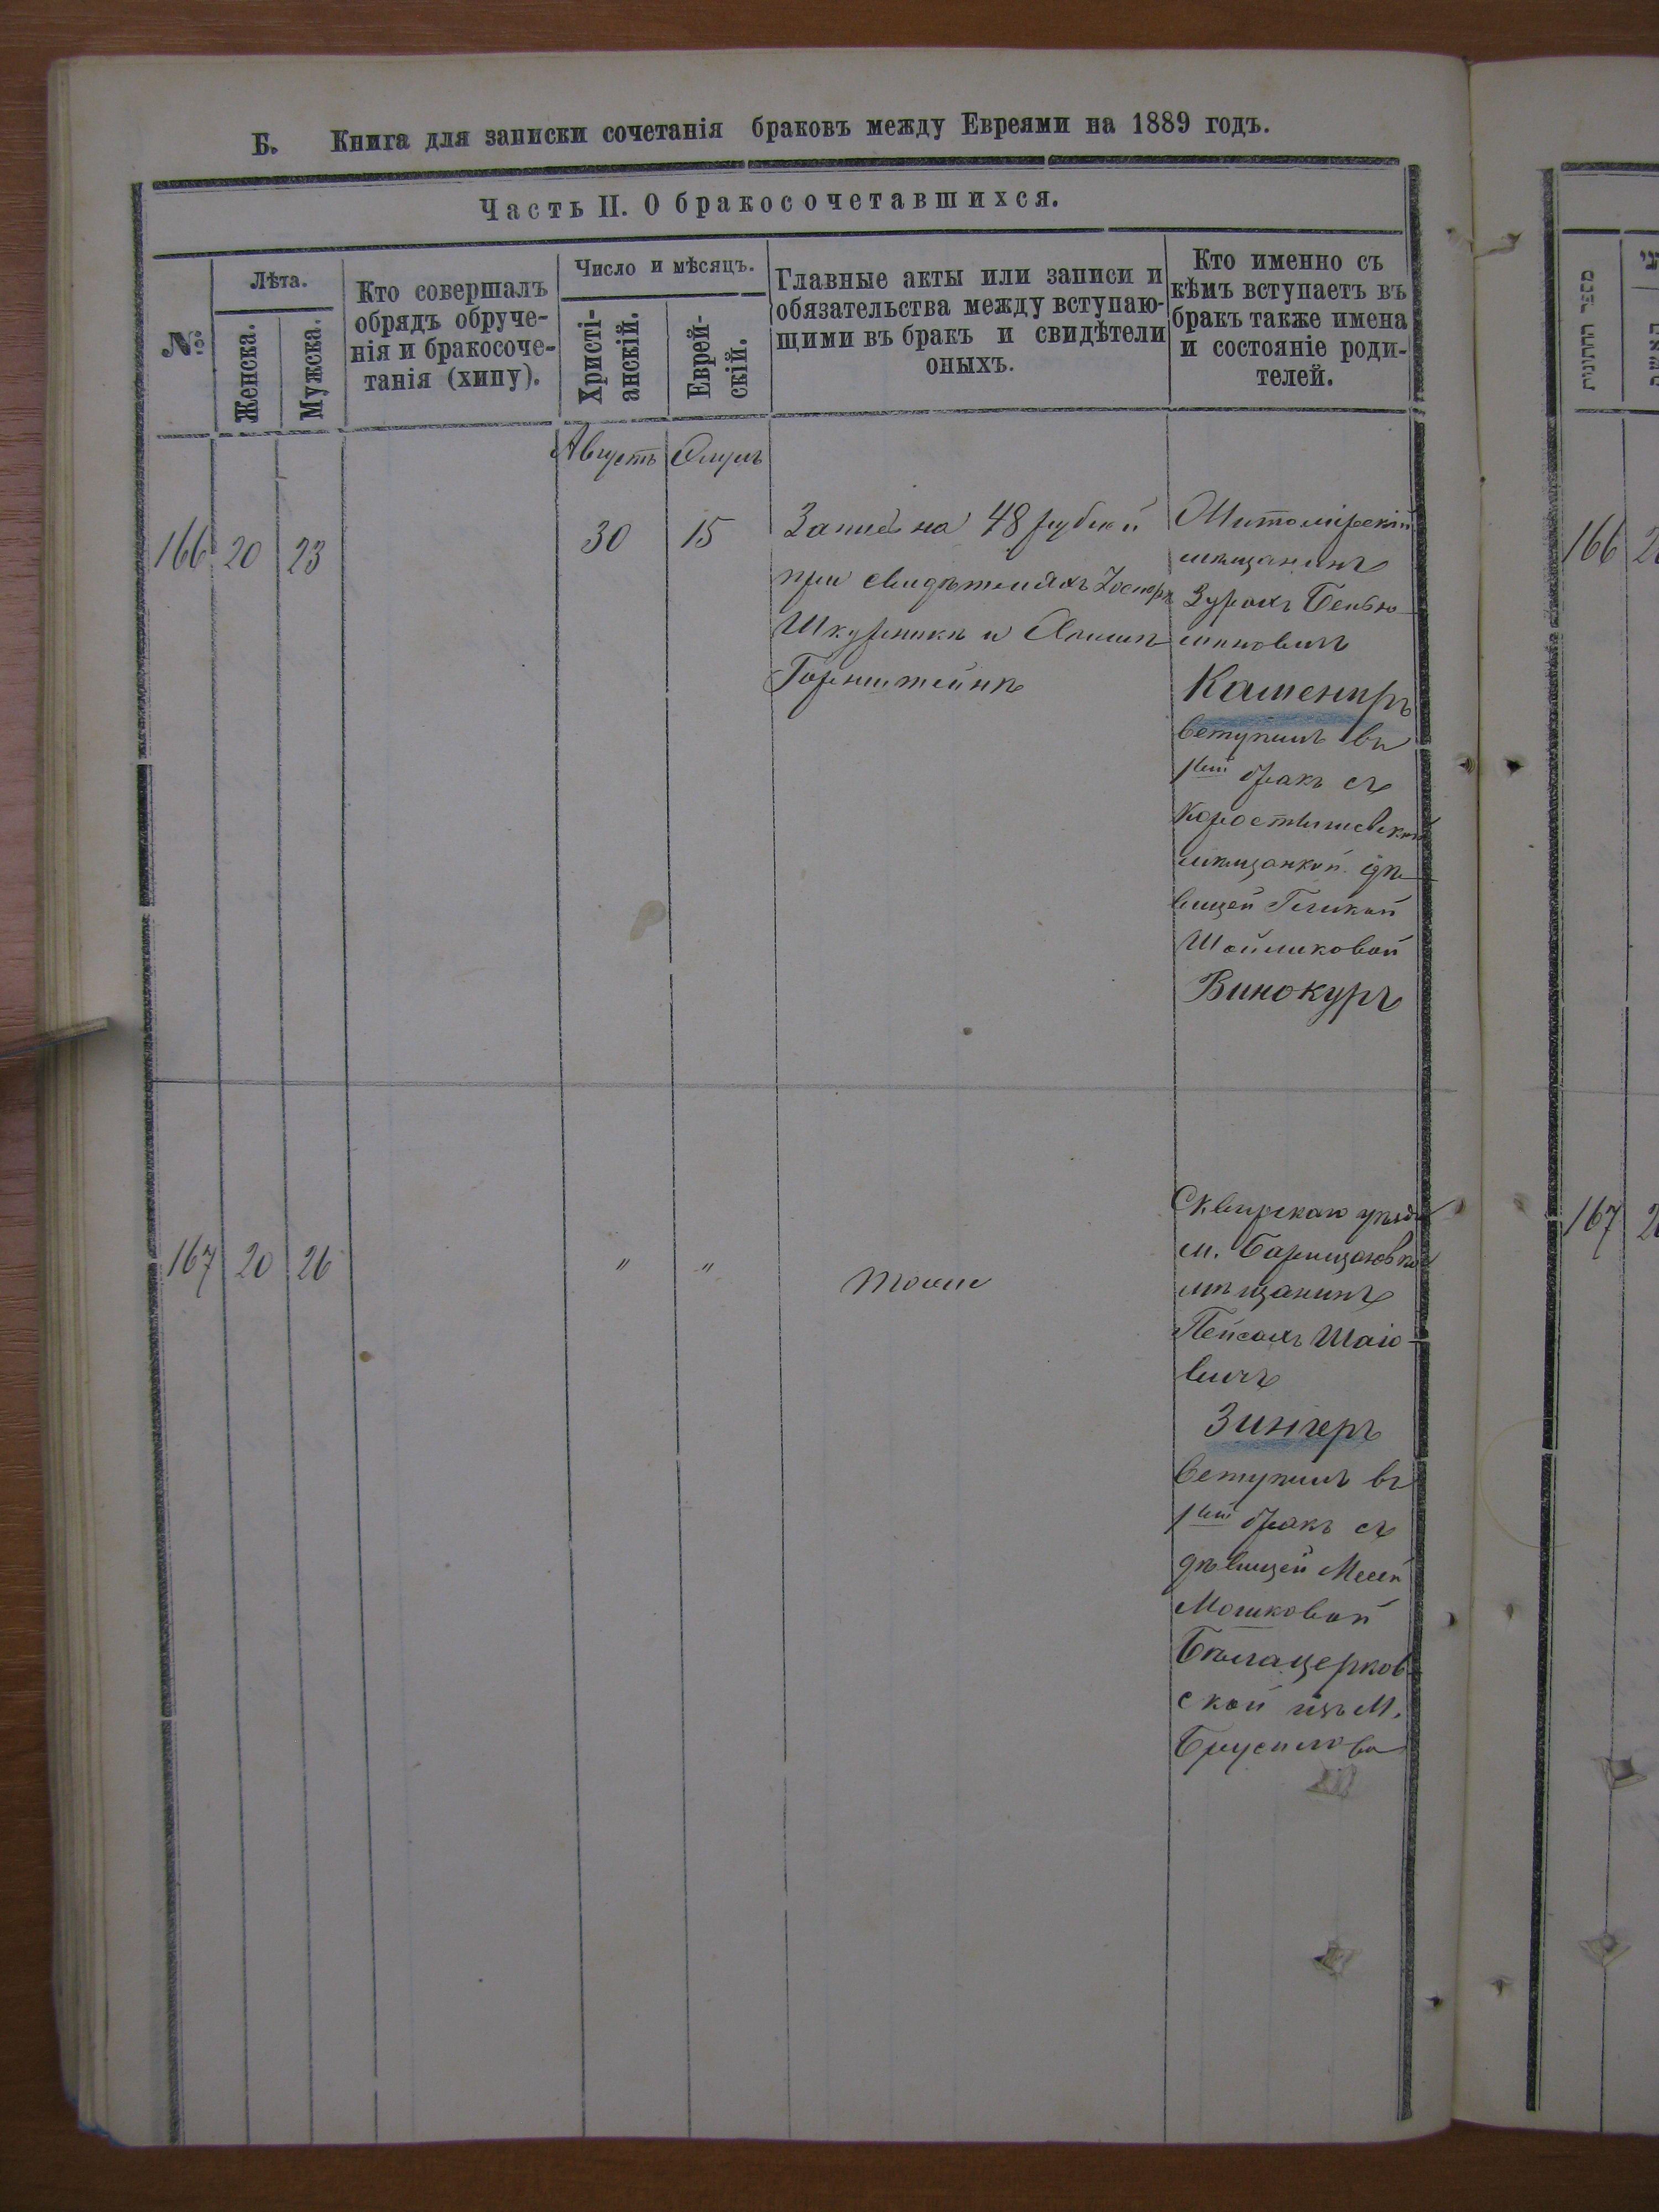 Б. Книга для записки сочетанія браковъ между Евреями на 1889 годъ.
Часть II. О бракосочетавшихся.
№
Лѣта.
Женска.
Мужска.
Кто совершалъ
обрядъ обруче-
нія и бракосоче-
танія (хипу).
Число и мѣсяцъ.
Христі-
анскій.
Еврей-
скій.
Главные акты или записи и
обязательства между вступаю-
щими въ бракъ и свидѣтели
оныхъ.
Кто именно съ
кѣмъ вступаетъ въ
бракъ также имена
и состояніе роди-
телей.
Августъ Элулъ
166 20 23 30 15
Запись на 48 рублей
при свидѣтеляхъ
Шкурникъ и
Горенштейнъ
Житомірскій
мѣщанинъ
Зурахъ Бенью-
миновичъ
Камениръ
вступилъ въ
1вый бракъ съ
Коростышевской
мѣщанкой дѣ-
вицей
Шойликовой
Винокуръ
167 20 26 " "
тоже
Сквирскаго уѣзда
м.
мѣщанинъ
Пейсахъ Шаіо-
вичъ
Зингеръ
вступилъ въ
1вый бракъ съ
дѣвицей
Мошковой
Бѣлацерков-
ской изъ М.
Брусилова
מספר החתונות
האשה
166
167